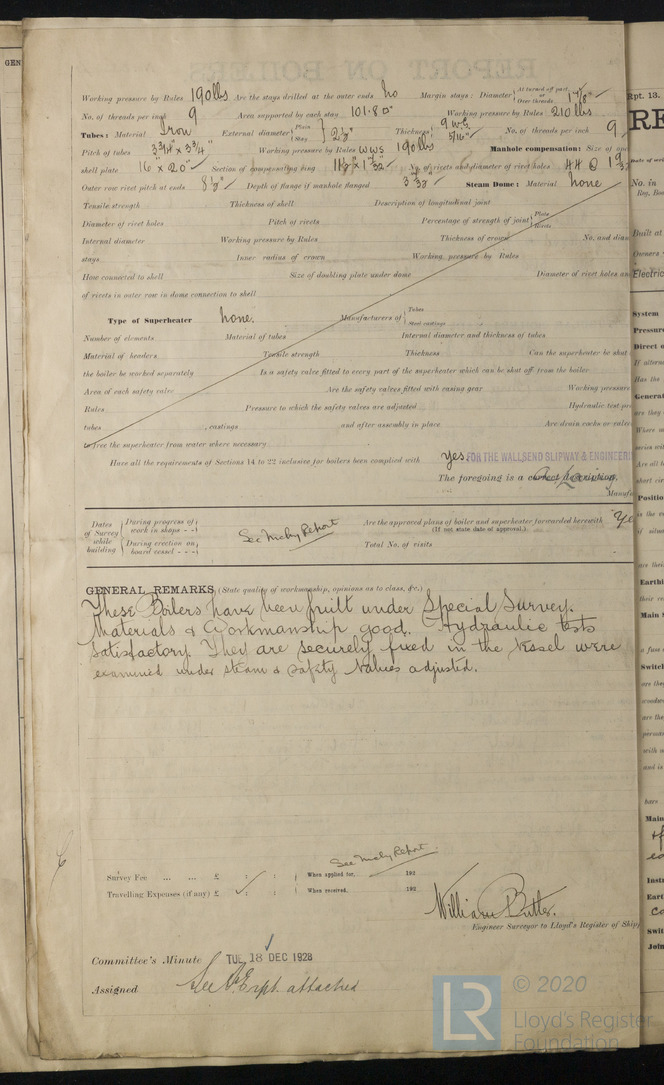 Working pressure by Rules 190 lbs Are the stays drilled at the outer ends no Margin stays: Diameter {At turned off part, or Over threads 1 7/8" ✓
No. of threads per inch 9 Area supported by each stay 101.80" Working pressure by Rules 210 lbs
Tubes: Material Iron External diameter {Plain Stay} 2 1/2" Thickness {9 W.G. 5/16" ✓ No. of threads per inch 9
Pitch of tubes 3 3/4" x 3 3/4" Working pressure by Rules WWS 190 lbs Manhole compensation: Size of
shell plate 16" x 20" ✓ Section of compensating ring No. of rivets and diameter of rivet holes 44 @
Outer row rivet pitch at ends 8 1/2" ✓ Depth of flange if manhole flanged Steam Dome: Material None
Tensile strength Thickness of shell Description of longitudinal joint
Diameter of rivet holes Pitch of rivets Percentage of strength of joint {Plate Rivets
Internal diameter Working pressure by Rules Thickness of crown No. and diam
stays Inner radius of crown Working pressure by Rules
How connected to shell Size of doubling plate under dome Diameter of rivet holes an
of rivets in outer row in dome connection to shell
Type of Superheater None. Manufacturers of {Tubes Steel castings
Number of elements Material of tubes Internal diameter and thickness of tubes
Material of headers Tensile strength Thickness Can the superheater be shut
the boiler be worked separately Is a safety valve fitted to every part of the superheater which can be shut off from the boiler
Area of each safety valve Are the safety valves fitted with easing gear Working pressure
Rules Pressure to which the safety valves are adjusted Hydraulic test pre
tubes , castings and after assembly in place Are drain cocks or valve
to free the superheater from water where necessary
Have all the requirements of Sections 14 to 22 inclusive for boilers been complied with yes. FOR THE WALLSEND SLIPWAY & ENGINEERI
The foregoing is a correct description,
Manufa
Dates of Survey while building {During progress of work in shops - - During erection on board vessel - - -} See Mchy Report Are the approved plans of boiler and superheater forwarded herewith Ye
(If not state date of approval.)
Total No. of visits
GENERAL REMARKS (State quality of workmanship, opinions as to class, &c.)
These Boilers have been built under Special Survey.
Materials & Workmanship good. Hydraulic tests
satisfactory. They are securely fixed in the Vessel were
examined under steam & safety Valves adjusted.
See Mchy Report.
Survey Fee ... ... £ : : When applied for, 192
Travelling Expenses (if any) £ : : When received, 192
William Butler.
Engineer Surveyor to Lloyd's Register of Shipp
Committee's Minute TUE 18 DEC 1928
Assigned See rpt. attached
GEN
Rpt. 13.
RE
No. in
Reg. Boo
Built at
Owners
Electric
System
Pressure
Direct o
If altern
Has the
Generat
are they
Where
Are all t
short cir
Positio
is the
if situa
are thei
Earthi
their re
Main S
a fuse
Switch
are they
woodwo
are the
with
and is
have
Main
Instr
Eart
Swit
Join
LR
© 2020
Lloyd's Register
Foundation